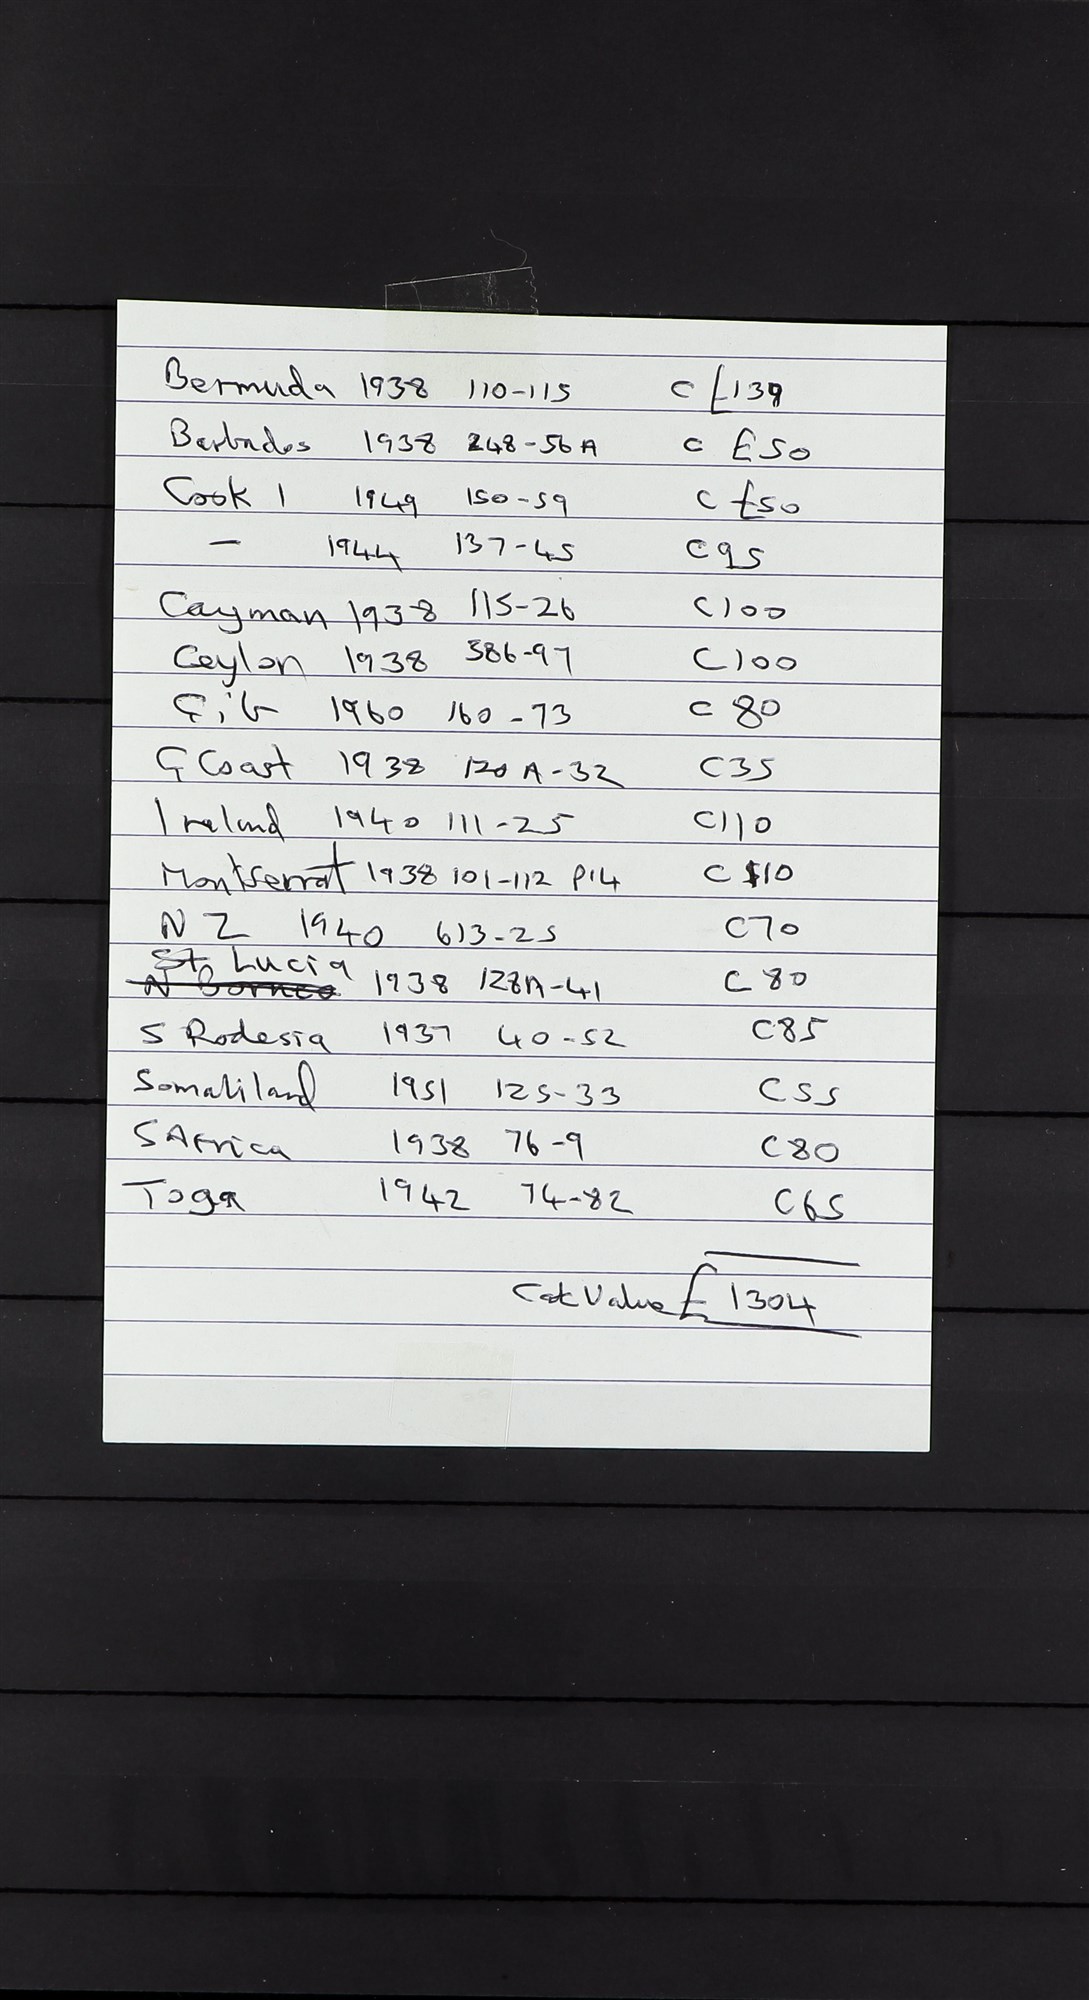 Bermuda 1938 110-115 C £139
Barbados 1938 248-56A C £50
Cook I 1949 150-59 C £50
— 1944 137-45 C95
Cayman 1938 115-26 C100
Ceylon 1938 386-97 C100
Gib 1960 160-73 C 80
G Coast 1938 120A-32 C35
Ireland 1940 111-25 C110
Montserrat 1938 101-112 P14 C 110
N Z 1940 613-25 C70
St Lucia
N Borneo 1938 128A-41 C 80
S Rodesia 1937 40-52 C85
Somaliland 1951 125-33 C55
S Africa 1938 76-9 C80
Toga 1942 74-82 C65
Cat Value £ 1304